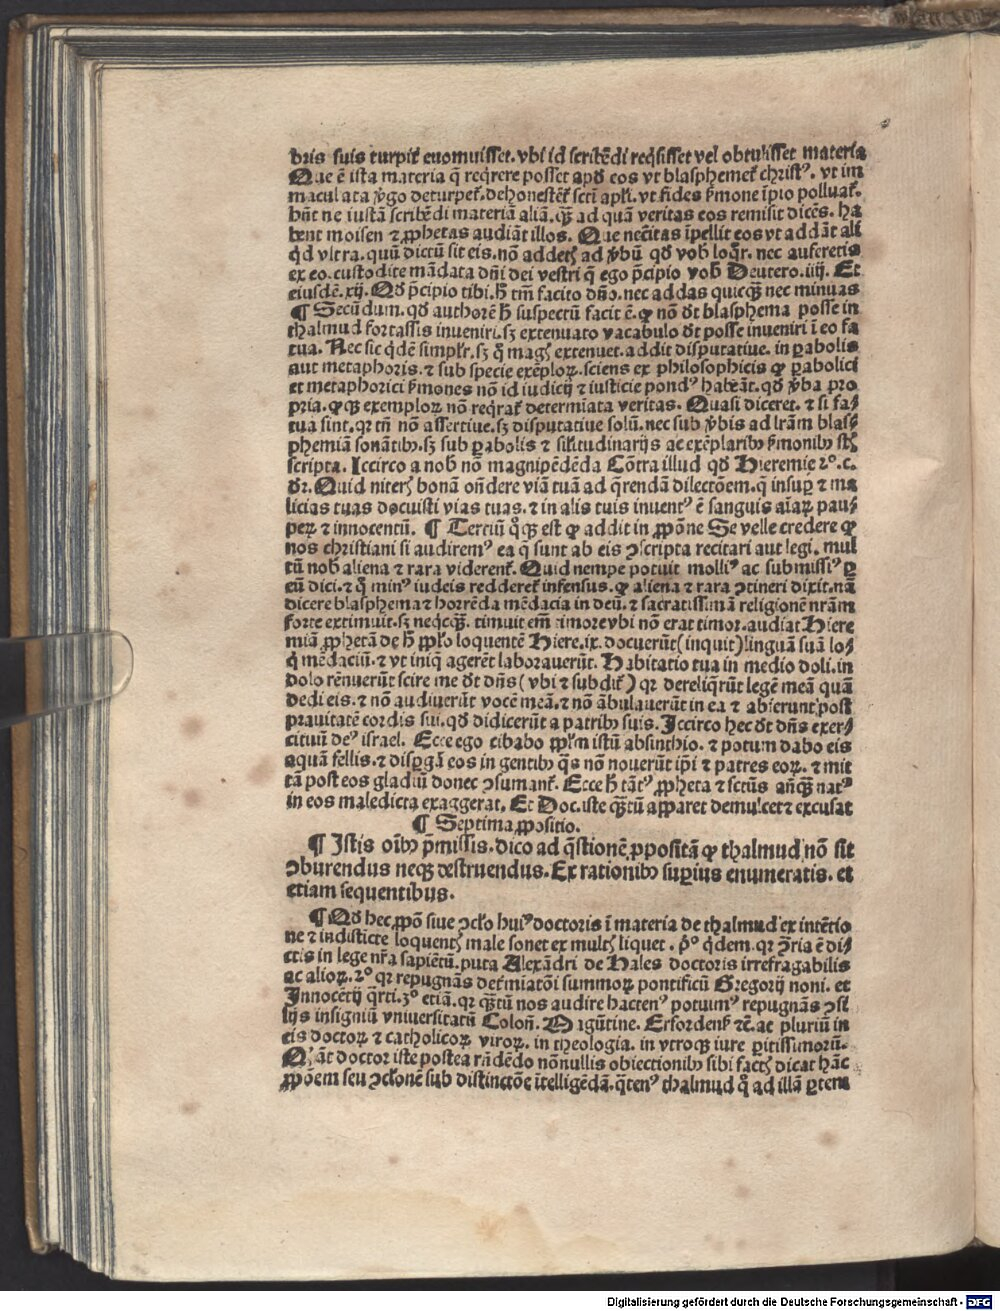 bris suis turpit̃ euomuisset. vbi id scribẽdi reqͥsisset vel obtulisset materia
Que ẽ ista materia q̃ reqͥrere posset apď eos vt blasphemet̃ christꝰ. vt im
maculata ꝟgo deturpet̃. dehonestẽt̃ sctī apłi. vt fides ẜmone ĩpio polluat̃.
hñt ne iustã scribẽdi materiã aliã. qꝫ ad quã veritas eos remisit dicẽs. ha
bent moisen ⁊ ꝓphetas audiãt illos. Que necͣitas ĩpellit eos vt addãt ali
qͥd vltra. quũ dictũ sit eis. nõ addetꝭ ad ꝟbũ qď vob̃ loqͦr. nec auferetis
ex eo. custodite mãdata dñi dei vestri q̃ ego p̃cipio vob̃ Deutero. iiij. Et
eiusdẽ. xij. Qď p̃cipio tibi. h̃ tm̃ facito dño. nec addas quicqꝫ nec minuas
¶ Secũdum. qď authorẽ h̃ suspectũ facit ẽ. ꝙ nõ ďt blasphema posse in
thalmud fortassis inueniri. sꝫ extenuato vacabulo ďt posse inueniri ĩ eo fa
tua. Nec sic qͥdẽ simpłr. sꝫ qͦ magꝭ extenuet. addit disputatiue. in ꝑabolis
aut metaphoris. ⁊ sub specie exẽploꝝ. sciens ex philosophicis ꝙ ꝑabolici
et metaphorici ẜmones nõ id iudicij ⁊ iusticie pondꝰ habẽãt. qď ꝟba pro
pria. ꝙqꝫ exemploꝝ nõ reqͥrat̃ determiata veritas. Quasi diceret. ⁊ si fa⸗
tua sint. qꝛ tñ nõ assertiue. sꝫ disputatiue solũ. nec sub ꝟbis ad lr̃am blas⸗
phemiã sonãtibꝰ. sꝫ sub ꝑabolis ⁊ silitudinarijs ac exẽplaribꝰ ẜmonibꝰ st̃
scripta. Iccirco a nob̃ nõ magnipẽdẽda Cõtra illud qď Hieremie 2ͦ. c.
ďr. Quid niterꝭ bonã oñdere viã tuã ad q̃rendã dilectõem. q̃ insuꝑ ⁊ ma
licias tuas docuisti vias tuas. ⁊ in alis tuis inuentꝰ ẽ sanguis aĩaꝝ pau⸗
peꝝ ⁊ innocentũ. ¶ Terciũ qͦqꝫ est ꝙ addit in ꝓpõne Se velle credere ꝙ
nos christiani si audiremꝰ ea q̃ sunt ab eis ꝯscripta recitari aut legi. mul
tũ nob̃ aliena ⁊ rara viderent̃. Quid nempe potuit molliꝰ ac submissiꝰ ꝑ
eũ dici. ⁊ qͦ minꝰ iudeis redderet̃ infensus. ꝙ aliena ⁊ rara ꝯtineri dixit. nã
dicere blasphema ⁊ horrẽda mẽdacia in deũ. ⁊ sacratissimã religionẽ nrãm
forte extimuit. sꝫ neqͥcqꝫ. timuit em̃ timore vbi nõ erat timor. audiat Hiere
miã ꝓphetã de h̃ ꝓpło loquentẽ Hiere. ix. docuerũt (inquit) linguã suã lo⸗
qͥ mẽdaciũ. ⁊ vt iniq̃ agerẽt laborauerũt. Habitatio tua in medio doli. in
dolo rẽnuerũt scire me ďt dñs (vbi ⁊ subdit̃) qꝛ dereliqͥrũt legẽ meã quã
dedi eis. ⁊ nõ audiuerũt vocẽ meã. ⁊ nõ ãbulauerũt in ea ⁊ abierunt post
prauitatẽ cordis sui. qď didicerũt a patribꝰ suis. Iccirco hec ďt dñs exer⸗
cituũ deꝰ israel. Ecce ego cibabo ꝓpłm istũ absinthio. ⁊ potum dabo eis
aquã fellis. ⁊ disꝑgã eos in gentibꝰ q̃s nõ nouerũt ip̃i ⁊ patres eoꝝ. ⁊ mit
tã post eos gladiũ donec ꝯsumant̃. Ecce h̃ tãtꝰ ꝓpheta ⁊ sctũs añqꝫ natꝰ
in eos maledicta exaggerat. Et Doc. iste qꝫtũ apparet demulcet ⁊ excusat
¶ Septima ꝓpositio.
¶ Istis oĩbꝰ p̃missis. dico ad q̃stionẽ ꝓpositã ꝙ thalmud nõ sit
ꝯburendus neqꝫ destruendus. Ex rationibꝰ suꝑius enumeratis. et
etiam sequentibus.
¶ Qď hec ꝓpõ siue ꝯcło huiꝰ doctoris ĩ materia de thalmud ex intẽtio
ne ⁊ indisticte loquentꝭ male sonet ex multꝭ liquet. pͦ. qͥdem. qꝛ ꝯͬria ẽ di⸗
ctis in lege nr̃a sapiẽtũ. puta Alexãdri de Hales doctoris irrefragabilis
ac alioꝝ. 2ͦ. qꝛ repugnãs det̃miatõi summoꝝ pontificũ Gregorij noni. et
Innocẽtij q̃rti. 3ͦ etiã. qꝛ qꝫtũ nos audire hactenꝰ potuimꝰ repugnãs ꝯsi
lijs insigniũ vniuersitatũ Coloñ. Magũtine. Erfordenẜ ⁊c̃. ac pluriũ in
eis doctoꝝ ⁊ catholicoꝝ viroꝝ. in theologia. in vtroqꝫ iure ꝑitissimorũ.
doctor iste postea rñdẽdo nõnullis obiectionibꝰ sibi factꝭ dicat hãc
ꝓpõem seu ꝯclonẽ sub distinctõe ĩtelligẽdã. q̃tenꝰ thalmud qͦ ad illã ꝑtem
Digitalisierung gefördert durch die Deutsche Forschungsgemeinschaft - DFG